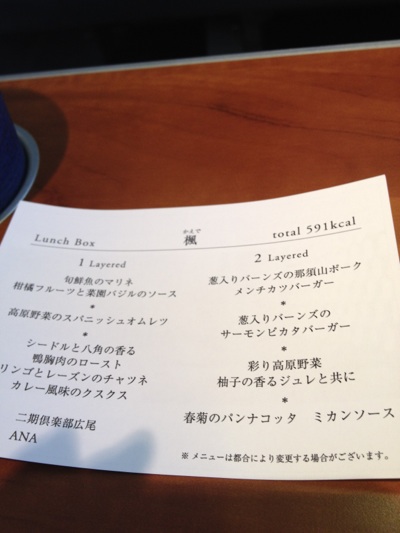 Lunch Box
かえで
楓
total 591kcal
1 Layered
旬鮮魚のマリネ
柑橘フルーツと菜園バジルのソース
*
高原野菜のスパニッシュオムレツ
*
シードルと八角の香る
鴨胸肉のロースト
リンゴとレーズンのチャツネ
カレー風味のクスクス
二期倶楽部広尾
ANA
2 Layered
葱入りバーンズの那須山ポーク
メンチカツバーガー
*
葱入りバーンズの
サーモンピカタバーガー
*
彩り高原野菜
柚子の香るジュレと共に
*
春菊のパンナコッタ ミカンソース
※ メニューは都合により変更する場合がございます。